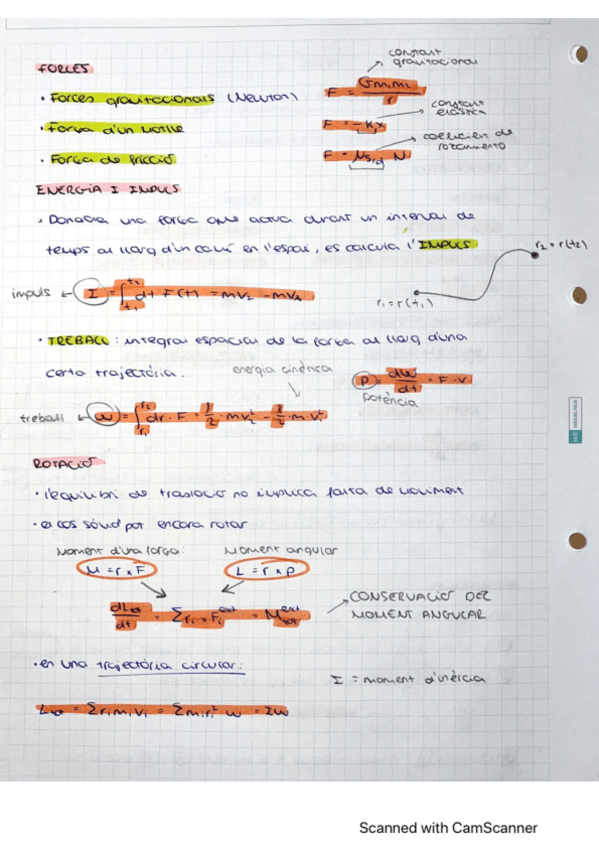 constant
gravitacional
FORCES
· Forces gravitacionals (Newton)
F = Gm₁m₂ / r
constant
elàstica
· Força d'un motlle
F = -Kx
coeficient de
rozamiento
· Força de fricció
F = μs,d N
ENERGIA I IMPULS
· Donada una força que actua durant un interval de
temps al llarg d'un camí en l'espai, es calcula l'IMPULS
r₂ = r(t₂)
impuls ← I = ∫t₁t₂ dt F(t) = mv₂ - mv₁
r₁ = r(t₁)
· TREBALL: integral espacial de la força al llarg d'una
certa trajectòria.
energia cinètica
P = dW/dt = F · V
potència
treball ← W = ∫r₁r₂ dr · F = 1/2 · mv₂² - 1/2 · m v₁²
ROTACIÓ
· l'equilibri de traslació no implica falta de moviment
· el cos sòlid pot encara rotar
Moment d'una força:
Moment angular
M = r x F
L = r x P
dLtot/dt = Σ ri x Fi ext = M ext tot
CONSERVACIÓ DEL
MOMENT ANGULAR
· en una trajectòria circular:
I = moment d'inèrcia
Ltot = Σrimivi = Σmiri² w = Iw
Scanned with CamScanner